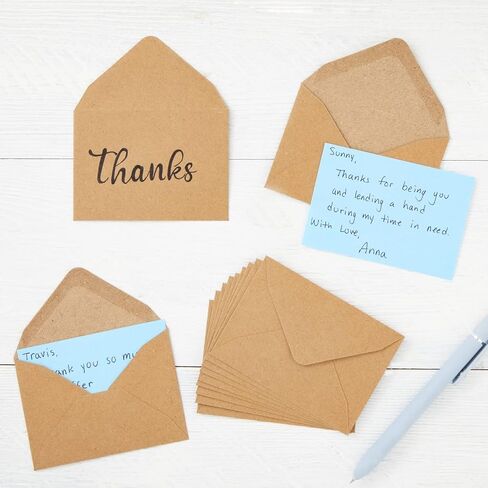 Thanks
Sunny,
Thanks for being you
and lending a hand
during my time in need.
With Love,
Anna
Travis,
ank you so mu
ffer